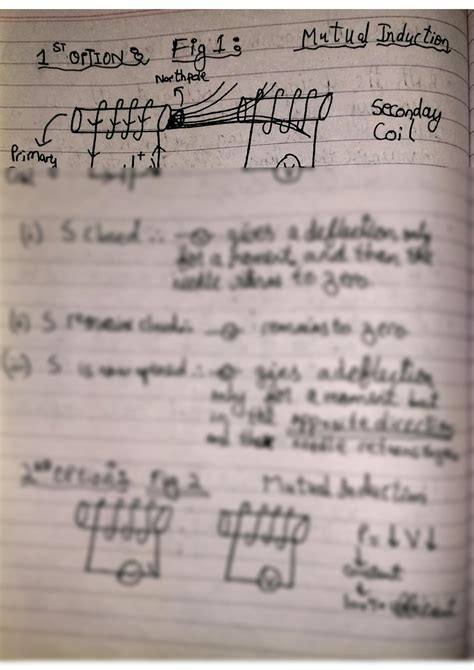 1ST OPTION :
Fig 1 :
Mutual Induction
North pole
Seconday
Coil
Primary
(i) S closed ∴ gives a deflection only
for a moment, and then the
needle to zero
(ii) S remains closed ∴ remains to zero
(iii) S is now opened ∴ gives a deflection
only for a moment but
in the opposite direction
and the needle returns
Fig 2
Mutual Induction
P = ↓ V ↓
constant